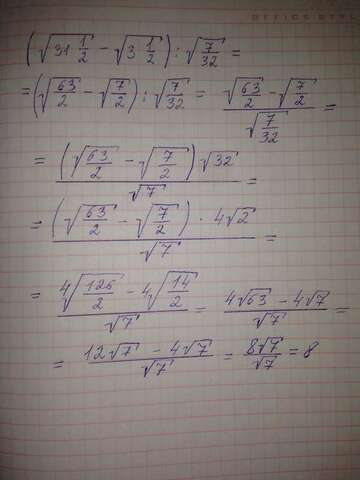 OFFICE
(√31 1/2 − √3 1/2) : √7/32 =
= (√63/2 − √7/2) : √7/32 = (√63/2 − √7/2)/√7/32 =
= (√63/2 − √7/2) √32/√7 =
= (√63/2 − √7/2) · 4√2/√7 =
= (4√126/2 − 4√14/2)/√7 = (4√63 − 4√7)/√7 =
= (12√7 − 4√7)/√7 = 8√7/√7 = 8